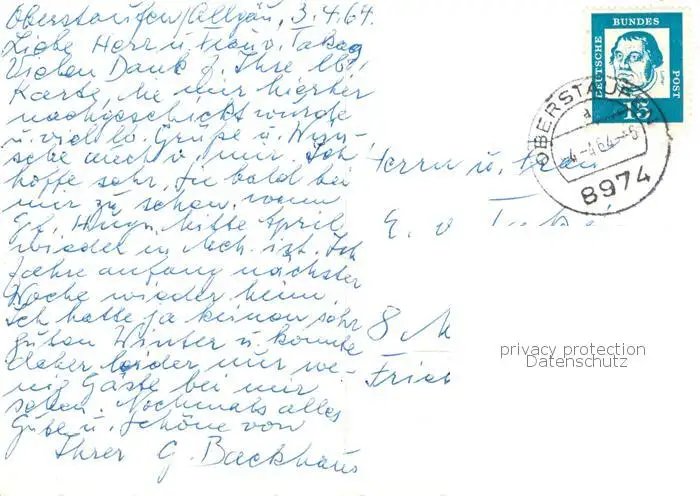 Oberstaufen/Allgäu, 3.4.64.
Liebe Herr u. Frau v. Takag
Vielen Dank f. Ihre lb.
Karte, die mir hierher
nachgeschickt wurde
u. viel lb. Grüße u. Wün-
sche auch v. mir. Ich
hoffe sehr, Sie bald bei
mir zu sehen, wenn
Gf. Hugo Mitte April
wieder in Mch. ist. Ich
fahre anfang nächster
Woche wieder heim.
Ich hatte ja keinen sehr
guten Winter u. konnte
daher leider nur we-
nig Gäste bei mir
sehen. Nochmals alles
Gute u. Schöne von
Ihrer G. Backhaus
DEUTSCHE BUNDES POST
15
OBERSTAUFEN
a
4.-4.64.-6
8974
Herrn u. Frau
E. v.
8 M
Fried
privacy protection
Datenschutz